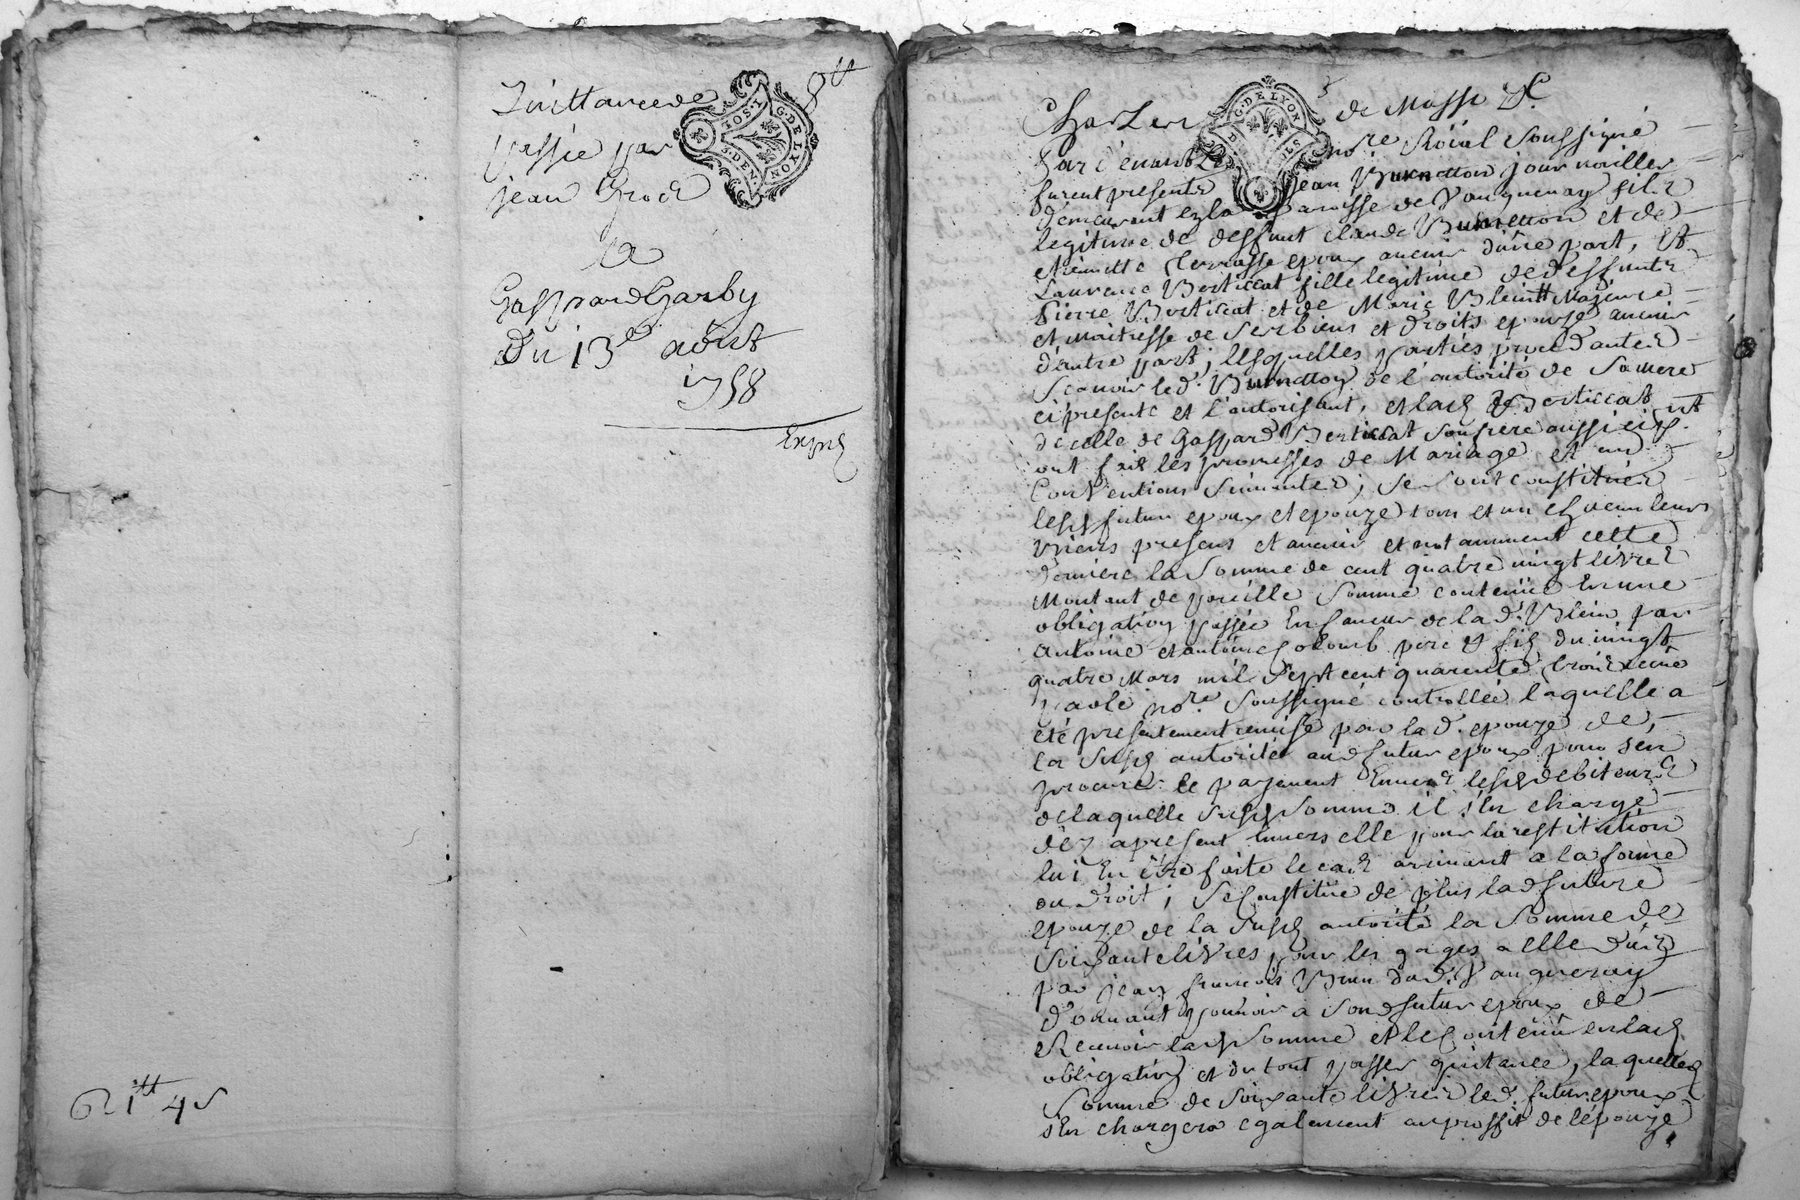 Quittance de 8tt
passée par
jean
a
Gaspard Garby
Du 13e aoust
1758
Exped
621tt 4s
G. DE LYON
3. DEN
G. DE LYON
SOLS
de Masse
Par devant le nore Roial soussigné
furent presents jean journallier
demeurant en la Paroisse de Vaugneray fils
legitime de deffunt claude et de
epoux avenir d'une part, Et
Laurence Verticat fille legitime de deffunts
Pierre Verticat et de Marie Blein Majeure
et Maitresse de ses biens et droits epouze avenir
d'autre part, lesquelles parties procedantes
Scavoir led. de l'autorité de sa mere
ci presente et l'autorisant, et lad Verticat
de celle de Gaspard Verticat son frere aussi
ont fait les promesses de Mariage et
Conventions suivantes; se sont constitués
lesd futur epoux et epouze tous et un chacun leurs
biens presens et avenir et notamment cette
derniere la somme de cent quatre vingt livres
Montant de pareille somme contenüe En une
obligation passée En faveur de la d. Blein par
antoine et antoine Colomb pere & fils du vingt
quatre Mars mil sept cent quarente trois recüe
par le nore soussigné controllée laquelle a
été presentement remise par la d. epouze de
la susd autorité aud futur epoux pour s'en
procurer le payement Envers lesd debiteurs
de laquelle susd somme il s'en charge
déz apresent Envers elle pour la restitution
lui En être faite le cas arrivant a la forme
du Droit; Se Constitüe de plus lad future
epouze de la susd autorité la somme de
soixante livres pour les gages a elle düs
par jean francois du d. Vaugneray
donnant pouvoir a son d futur epoux de
Recevoir lad somme et le Contenü en lad
obligation et du tout passer quitance, laquelle
somme de soixante livres led. futur epoux
s'en chargera egalement au proffit de l'épouze